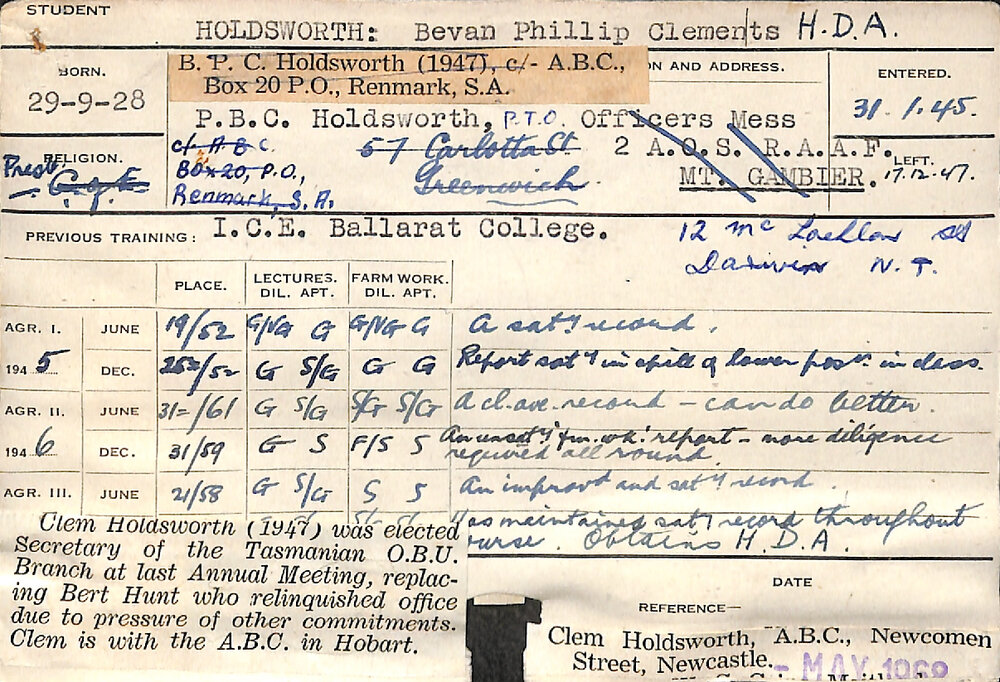 STUDENT
HOLDSWORTH: Bevan Phillip Clements H.D.A.
B. P. C. Holdsworth (1947), c/- A.B.C.,
Box 20 P.O., Renmark, S.A.
ON AND ADDRESS.
BORN.
29-9-28
ENTERED.
31.1.45.
P.B.C. Holdsworth, P.T.O. Officers Mess
2 A.O.S. R.A.A.F.
MT. GAMBIER.
c/- A B C.
Box 20, P.O.,
Renmark, S.A.
57 Carlotta St
Greenwich
RELIGION.
Presb.
C. of E.
LEFT.
17.12.47.
PREVIOUS TRAINING: I.C.E. Ballarat College.
12 Mc Lachlan St
Darwin N.T.
PLACE. LECTURES. DIL. APT. FARM WORK. DIL. APT.
AGR. I. JUNE 19/52 G/VG G G/VG G A saty record.
1945 DEC. 25=/52 G S/G G G Report saty in spill of lower posn. in class.
AGR. II. JUNE 31=/61 G S/G S/G S/G A cl. ave. record - can do better.
1946 DEC. 31/59 G S F/S S An unsaty fm. wk. report - more diligence
required all round
AGR. III. JUNE 21/58 G S/G S S An improvt and saty record.
as maintained saty record throughout
urse. Obtains H.D.A.
Clem Holdsworth (1947) was elected
Secretary of the Tasmanian O.B.U.
Branch at last Annual Meeting, replac-
ing Bert Hunt who relinquished office
due to pressure of other commitments.
Clem is with the A.B.C. in Hobart.
DATE
REFERENCE—
Clem Holdsworth, A.B.C., Newcomen
Street, Newcastle.
- MAY 1968